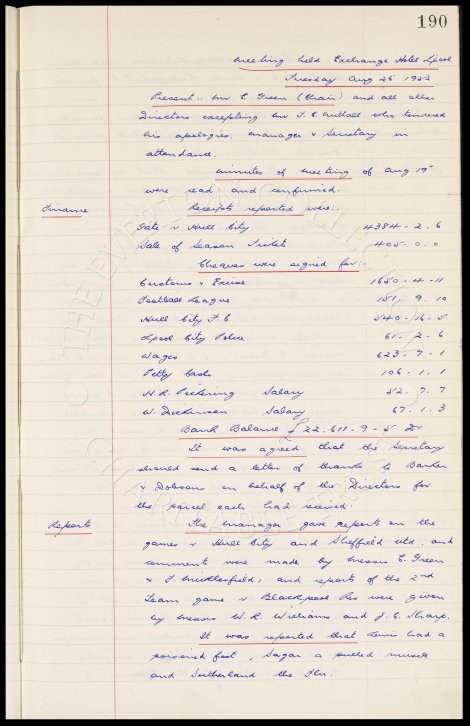 190
Meeting held Exchange Hotel Lpool
Tuesday Aug 26 1952
Present:. Mr E Green (Chair) and all other
Directors excepting Mr T. C. Nuttall who tendered
his apologies. Manager & Secretary in
attendance.
Minutes of meeting of Aug 19th
were read and confirmed.
Finance Receipts reported were:.
Gate v Hull City 4384-2-6
Sale of Season Tickets 405-0-0
Cheques were signed for:.
Customs & Excise 1650-4-11
Football League 151-9-10
Hull City F.C 540-16-5
Lpool City Police 61-2-6
Wages 623-7-1
Petty Cash 106-1-1
H. R. Pickering Salary 52-7-7
W. Dickinson Salary 67-1-3
Bank Balance £22,611-9-5 Dr
It was agreed that the Secretary
should send a letter of thanks to Barker
& Dobsons on behalf of the Directors for
the parcel each had received.
Reports The Manager gave reports on the
games v Hull City and Sheffield Utd, and
comment were made by Messrs E. Green
& F. Micklesfield, and reports of the 2nd
Team game v Blackpool Res were given
by Messrs W. R. Williams and J. C. Sharp.
It was reported that Lewis had a
poisoned foot, Sagar a pulled muscle
and Sutherland the Flu.
THE EVERTON COLLECTION
CHARITABLE TRUST